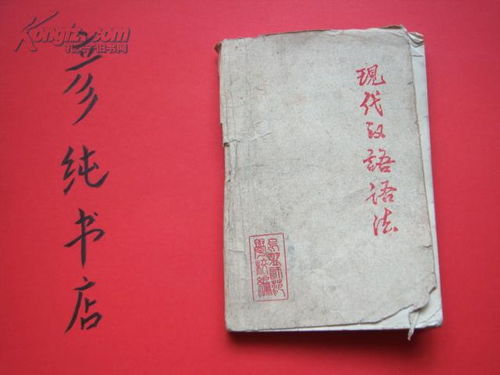 Kongfz.com
孔夫子旧书网
彦纯书店
現代汉語语法